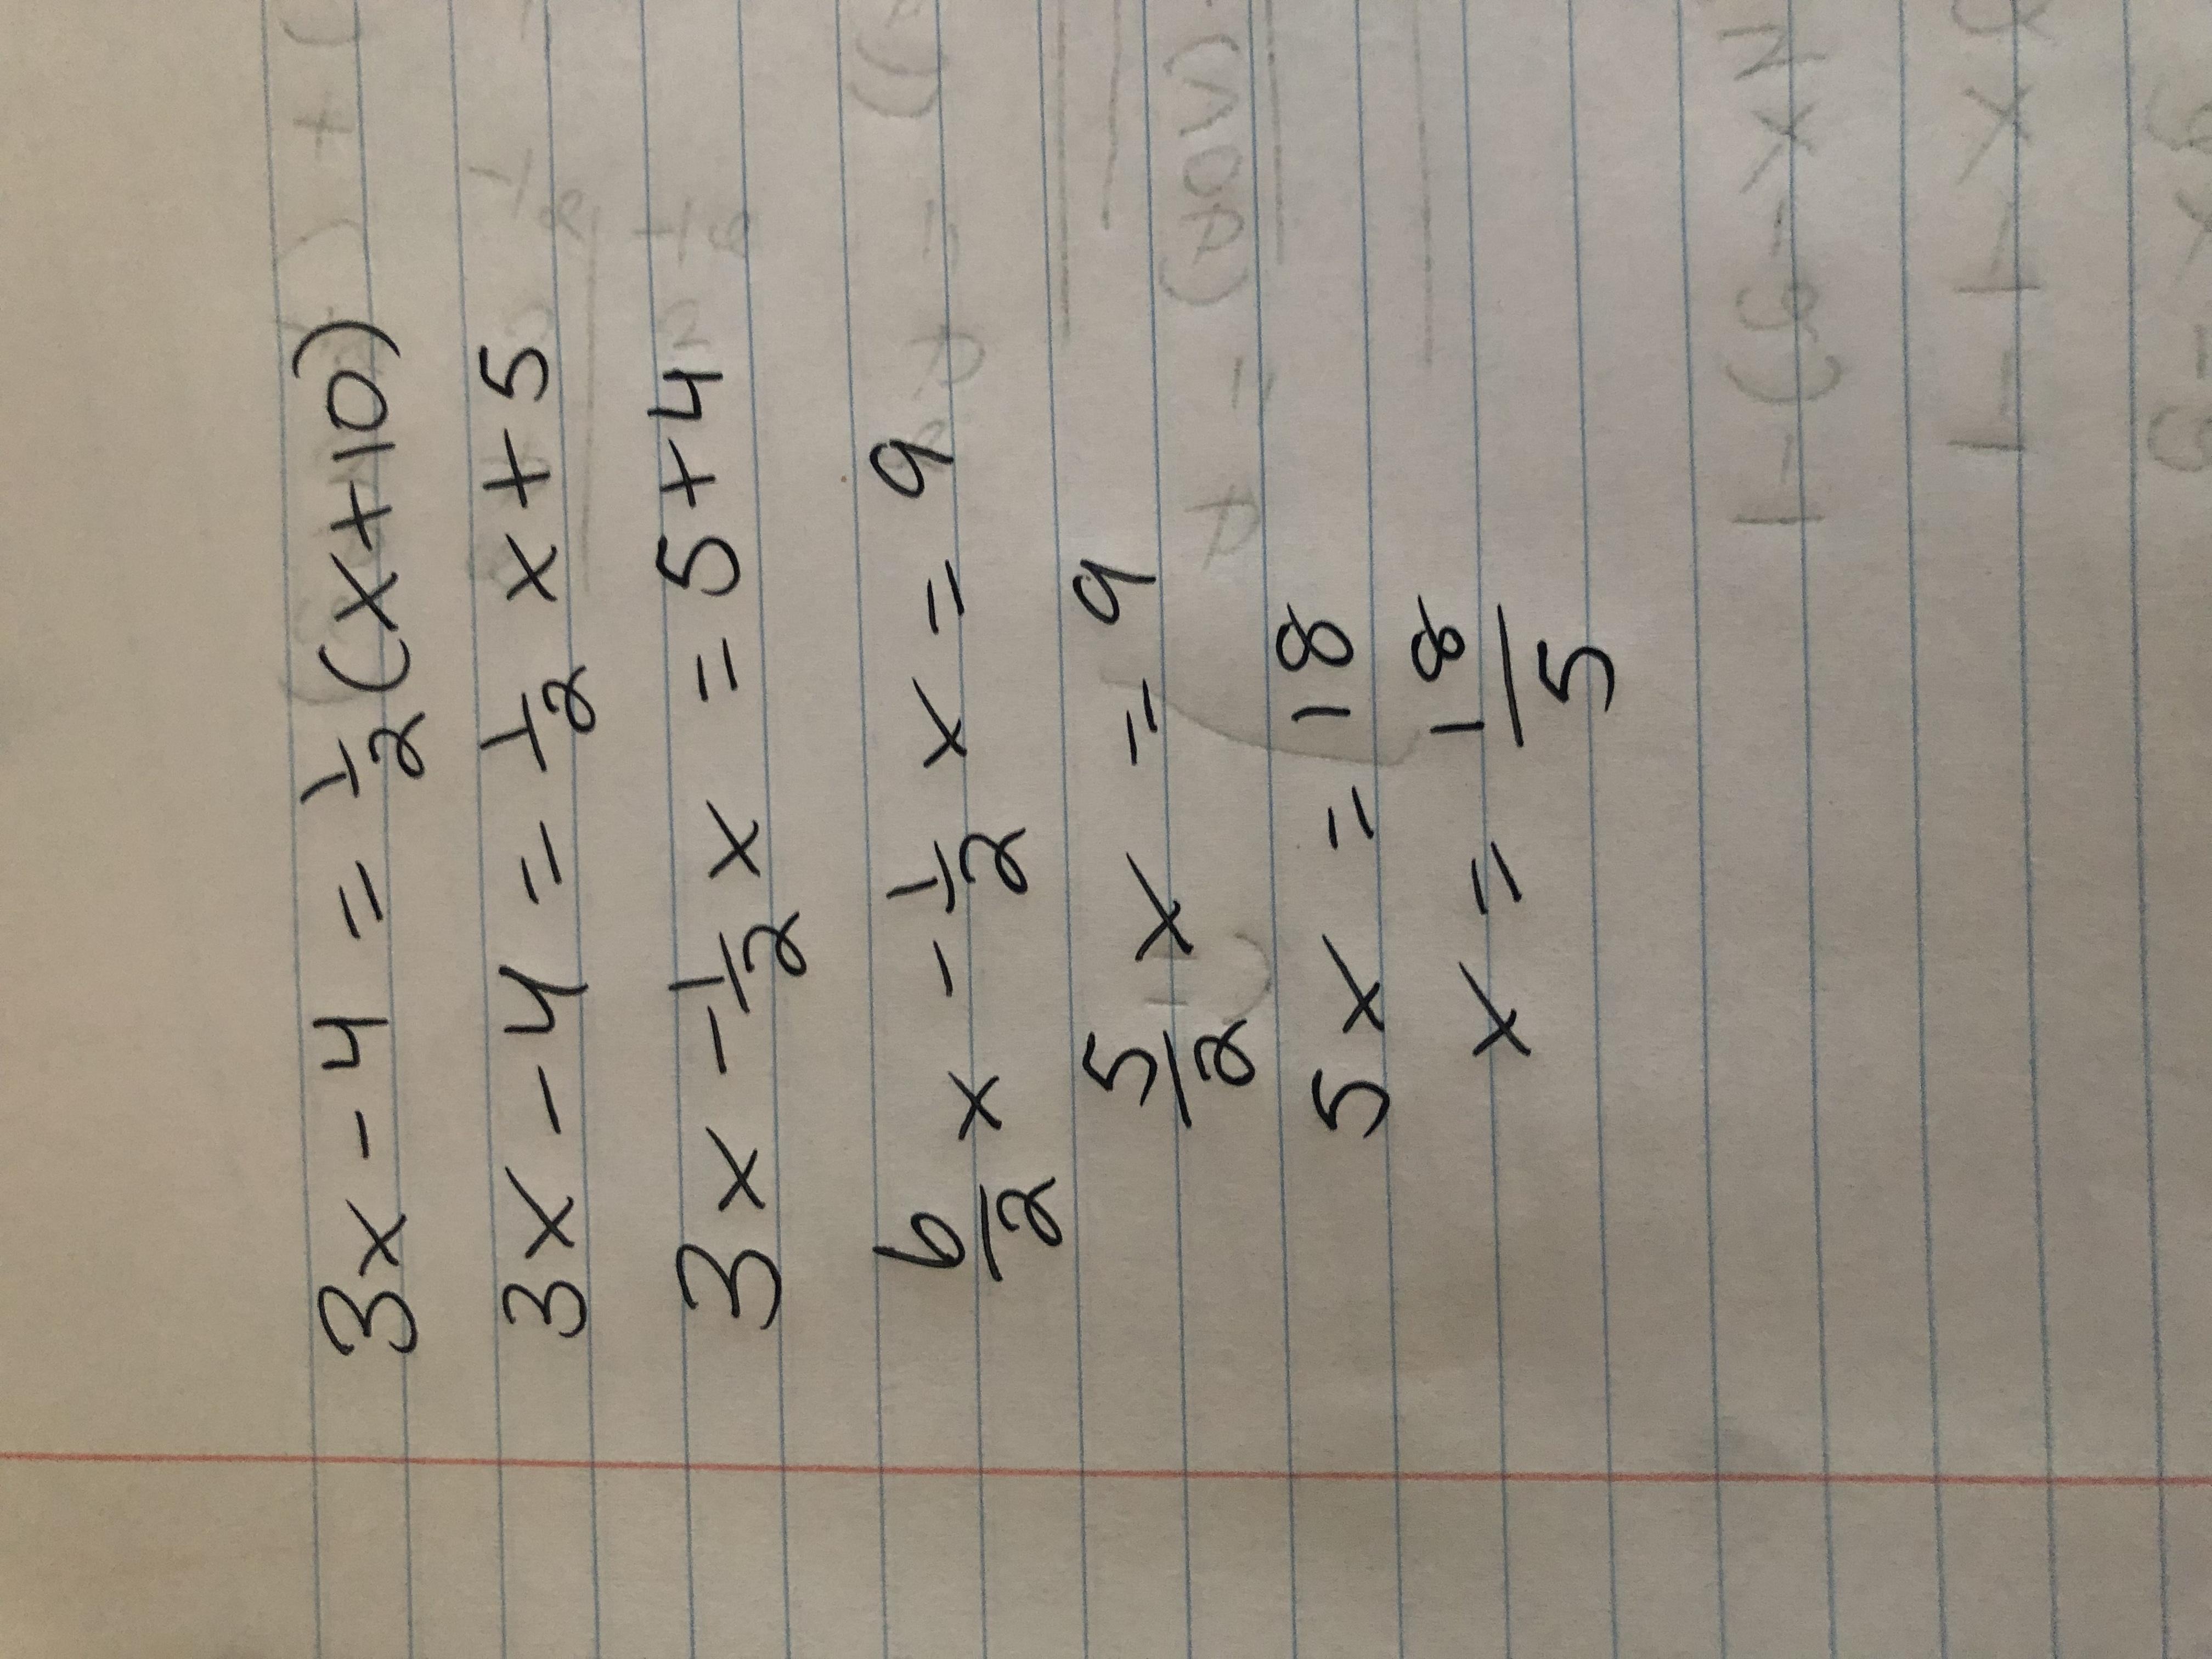 3x - 4 = 1/2 (x+10)
3x - 4 = 1/2 x + 5
3x - 1/2 x = 5+4
6/2 x - 1/2 x = 9
5/2 x = 9
5x = 18
x = 18/5